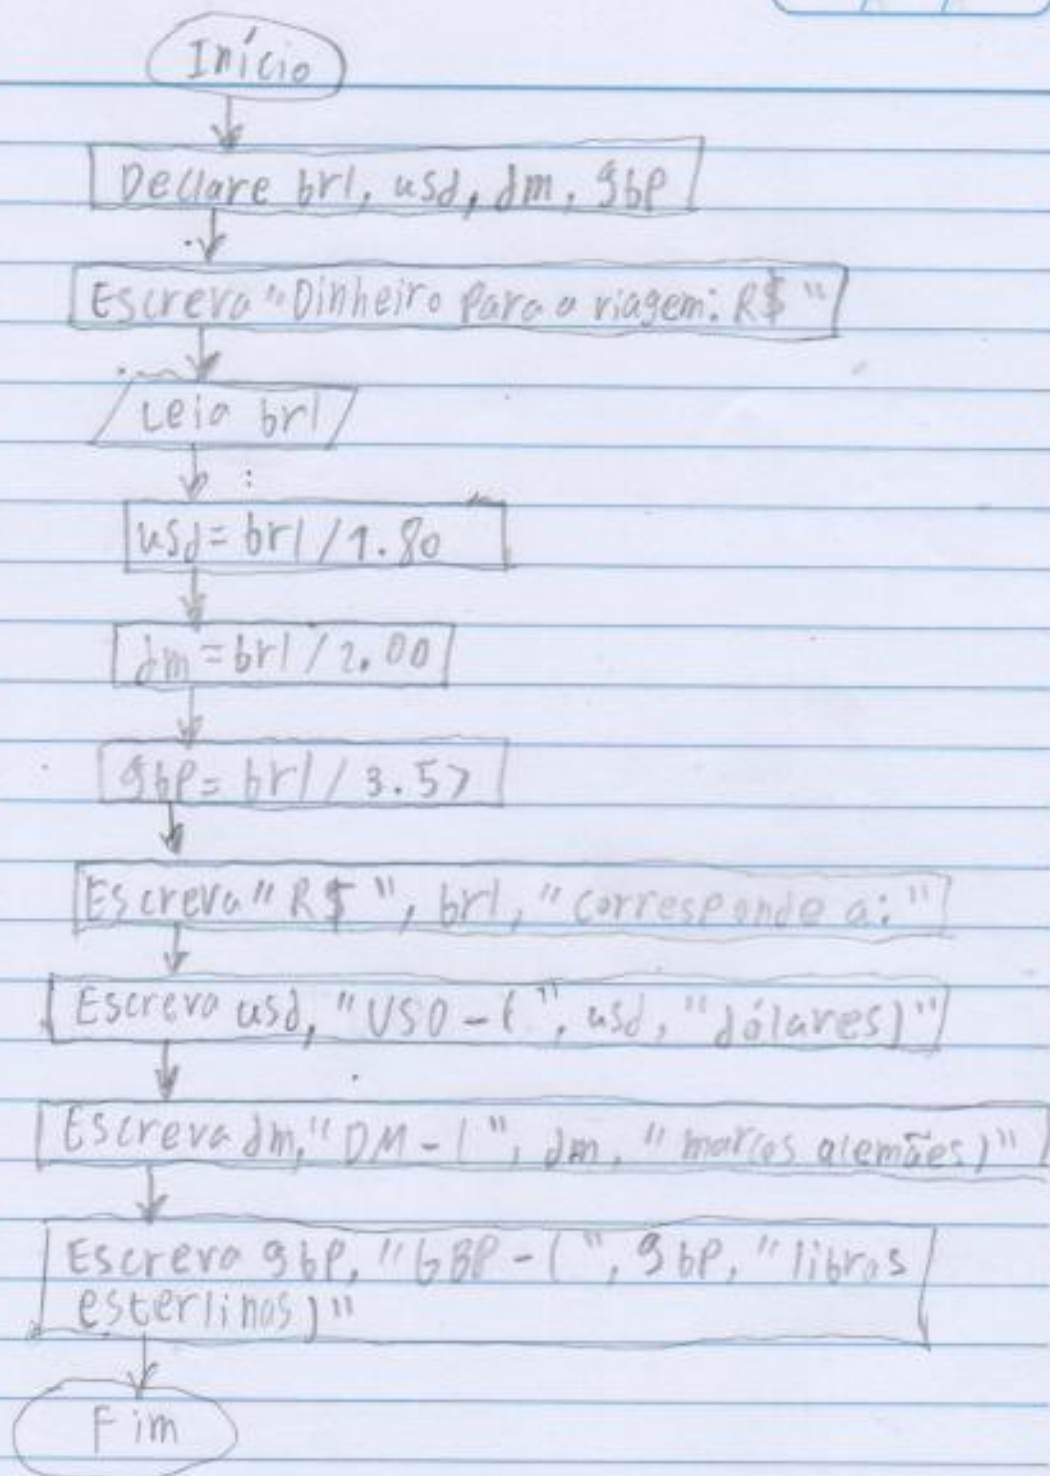 Início
Declare brl, usd, dm, gbp
Escreva "Dinheiro para a viagem: R$ "
Leia brl
usd = brl / 1.80
dm = brl / 2.00
gbp = brl / 3.57
Escreva "R$ ", brl, "corresponde a: "
Escreva usd, "USD - ( ", usd, "dólares)"
Escreva dm, "DM - ( ", dm, "marcos alemães)"
Escreva gbp, "GBP - ( ", gbp, "libras
esterlinas)"
Fim